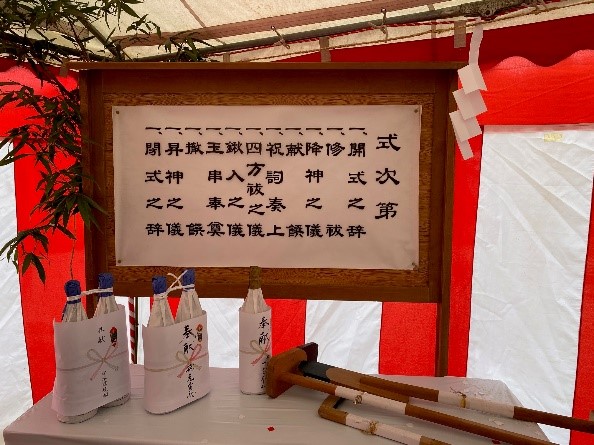 式次第
一、開式之辞
一、修祓
一、降神之儀
一、献饌
一、祝詞奏上
一、四方祓之儀
一、鍬入之儀
一、玉串奉奠
一、撤饌
一、昇神之儀
一、閉式之辞
奉献
奉献